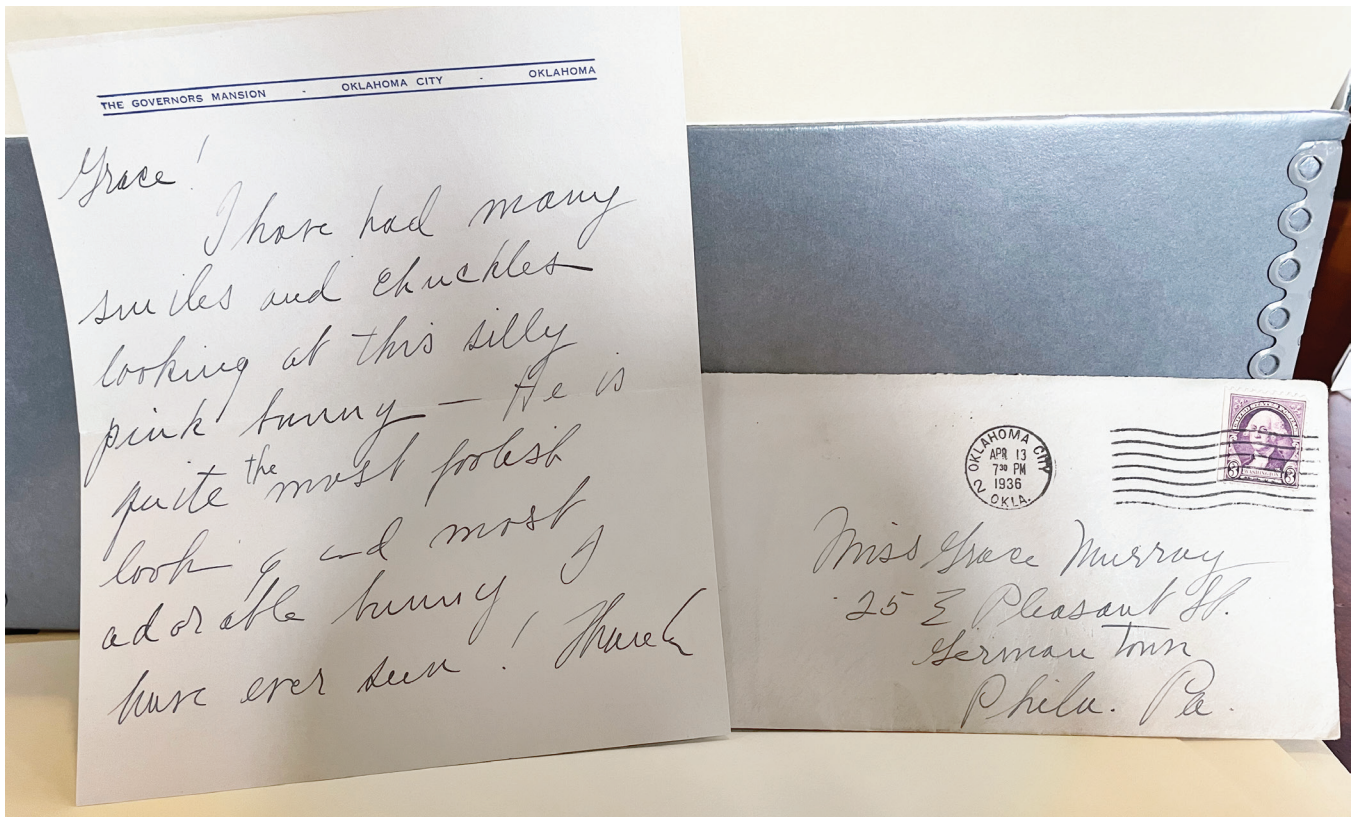 THE GOVERNORS MANSION - OKLAHOMA CITY - OKLAHOMA
Grace!
I have had many
smiles and chuckles
looking at this silly
pink bunny — He is
quite the most foolish
looking and most
adorable bunny I
have ever seen! Thank
OKLAHOMA CITY
APR 13
7 30 PM
1936
2 OKLA.
UNITED STATES POSTAGE
3 WASHINGTON 3
Miss Grace Murray
25 E Pleasant St.
Germantown
Phila. Pa.